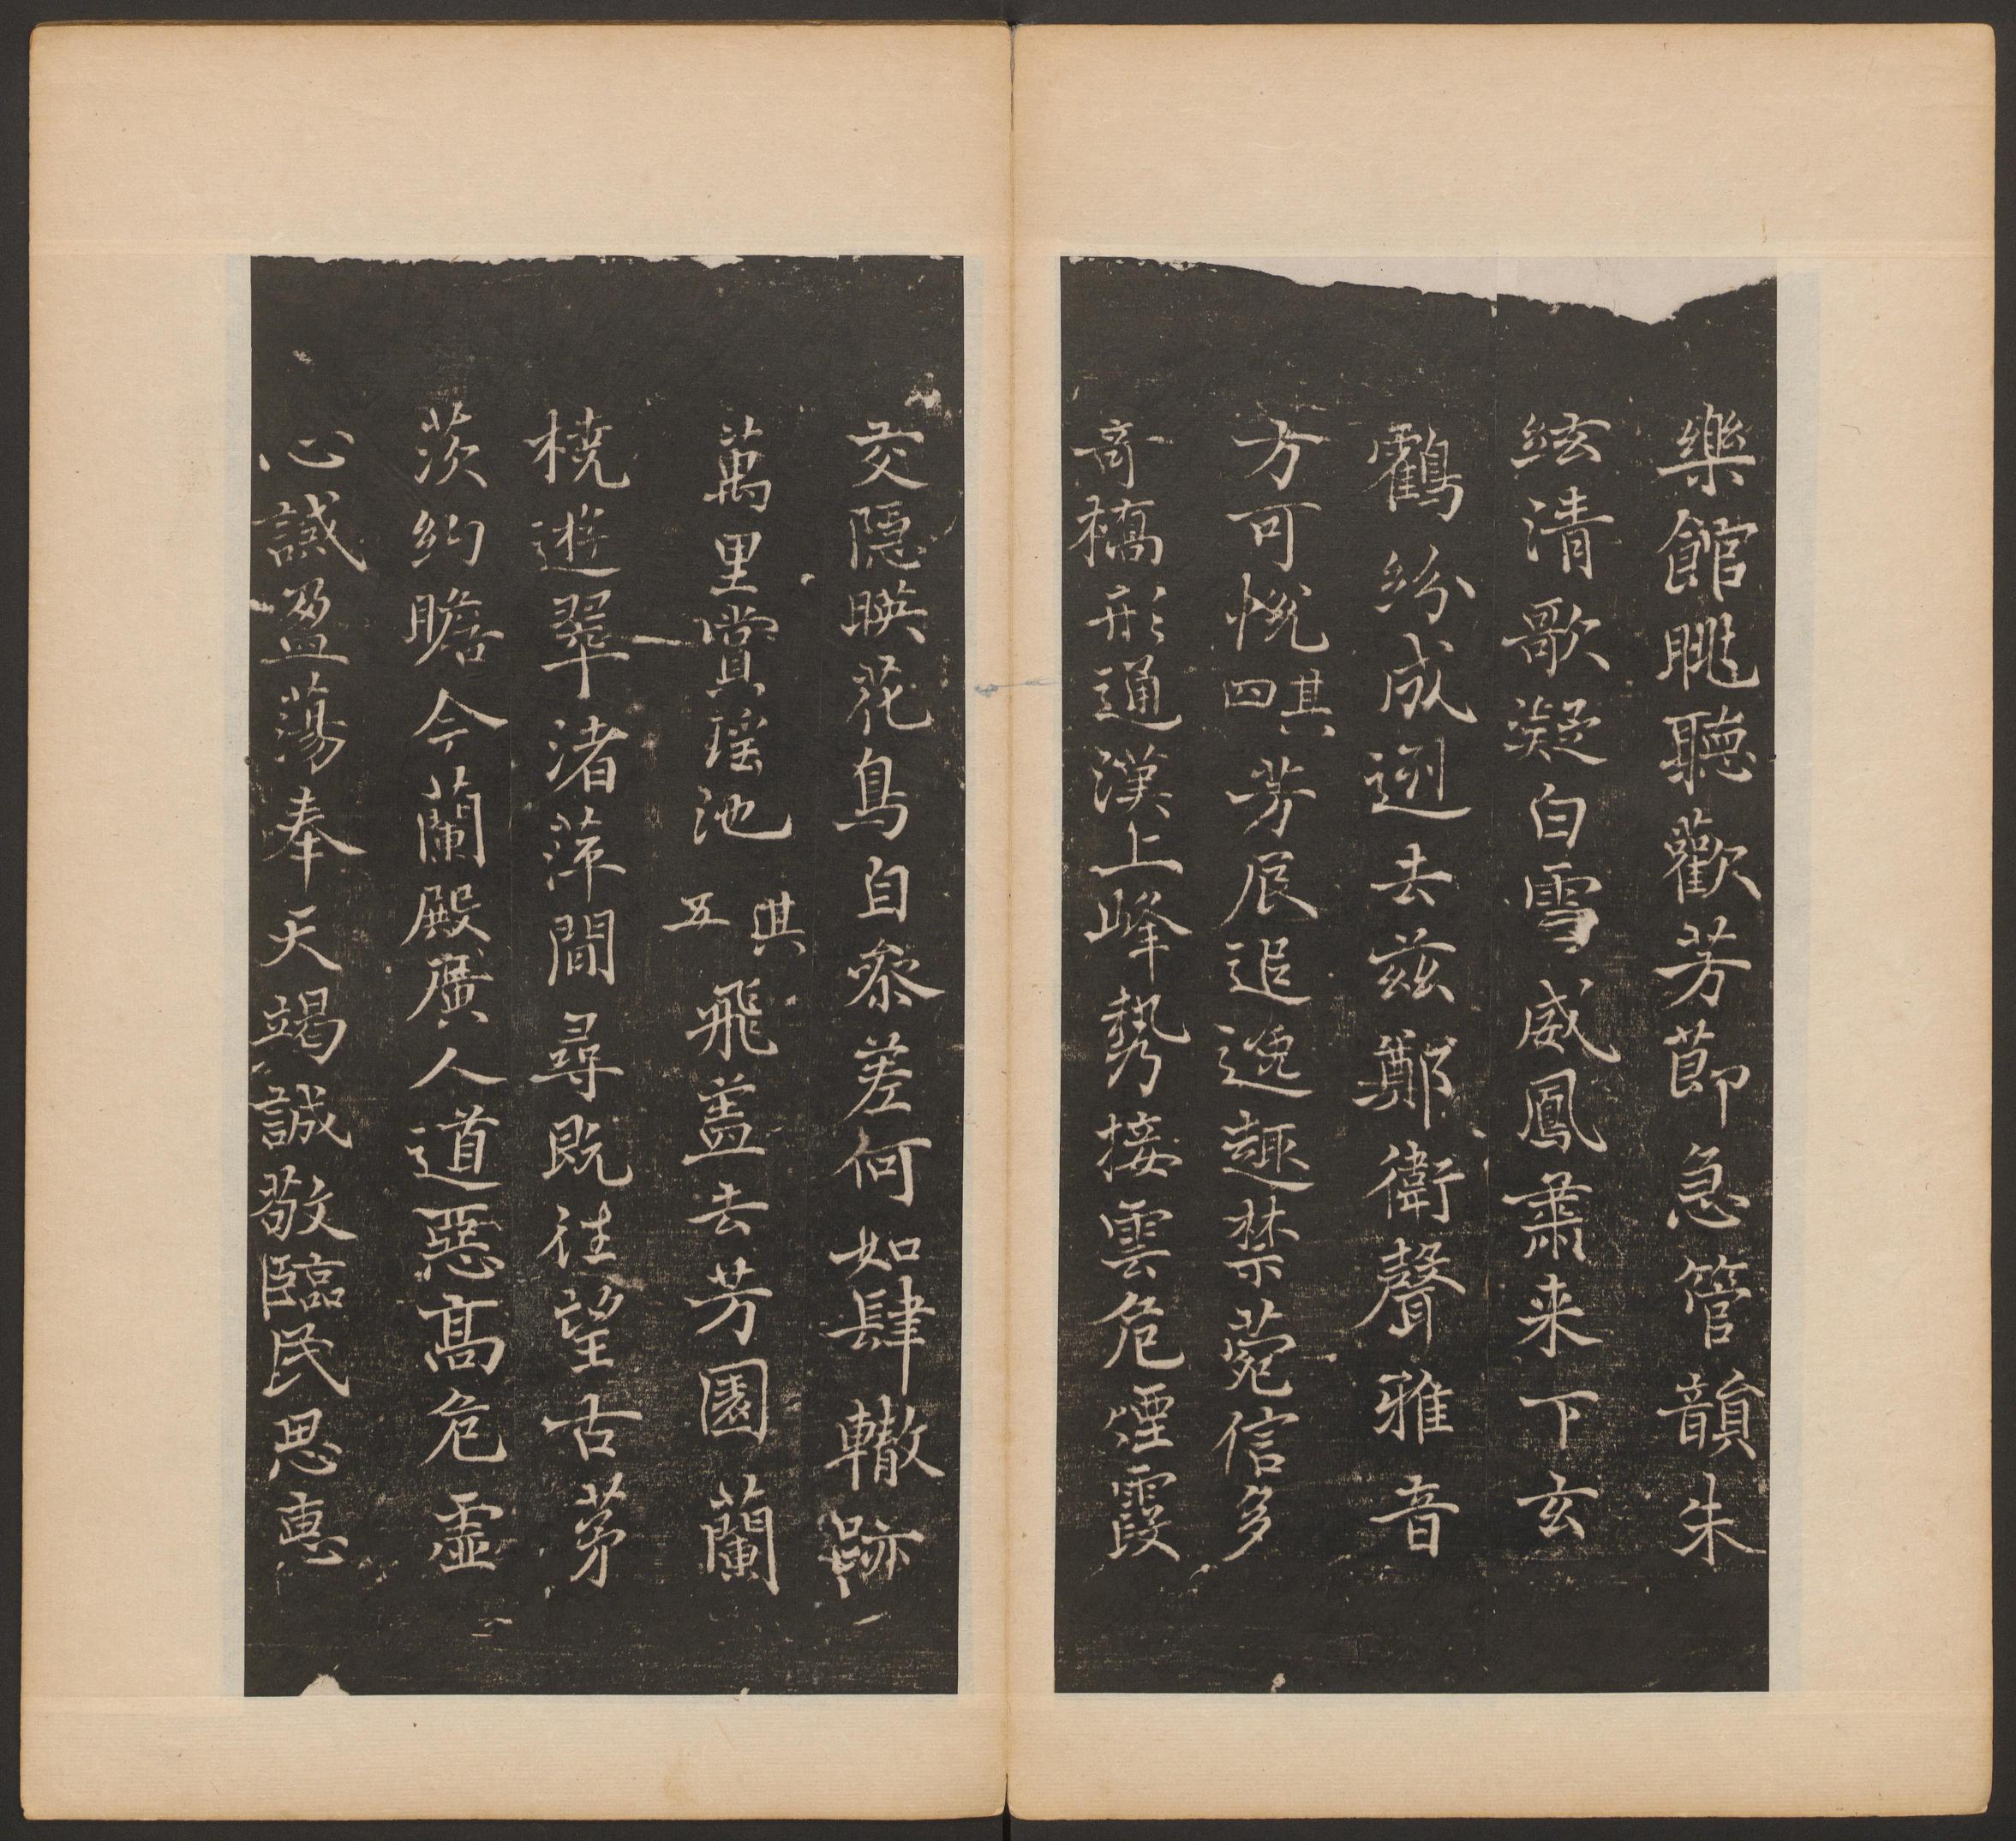 樂館眺聽歡芳節急管韻朱
絃清歌凝白雪威鳳肅来下玄
鶴紛成迾去兹鄭衛聲雅音
方可悅其四芳辰追逸趣禁菀信多
奇橋形通漢上峰勢接雲危煙霞
交隱暎花鳥自叅差何如肆轍跡
萬里賞瑤池其五飛盖去芳園蘭
橈遊翠渚萍間尋既往望古茅
茨約瞻今蘭殿廣人道惡高危虛
心誡盈蕩奉天竭誠敬臨民思惠